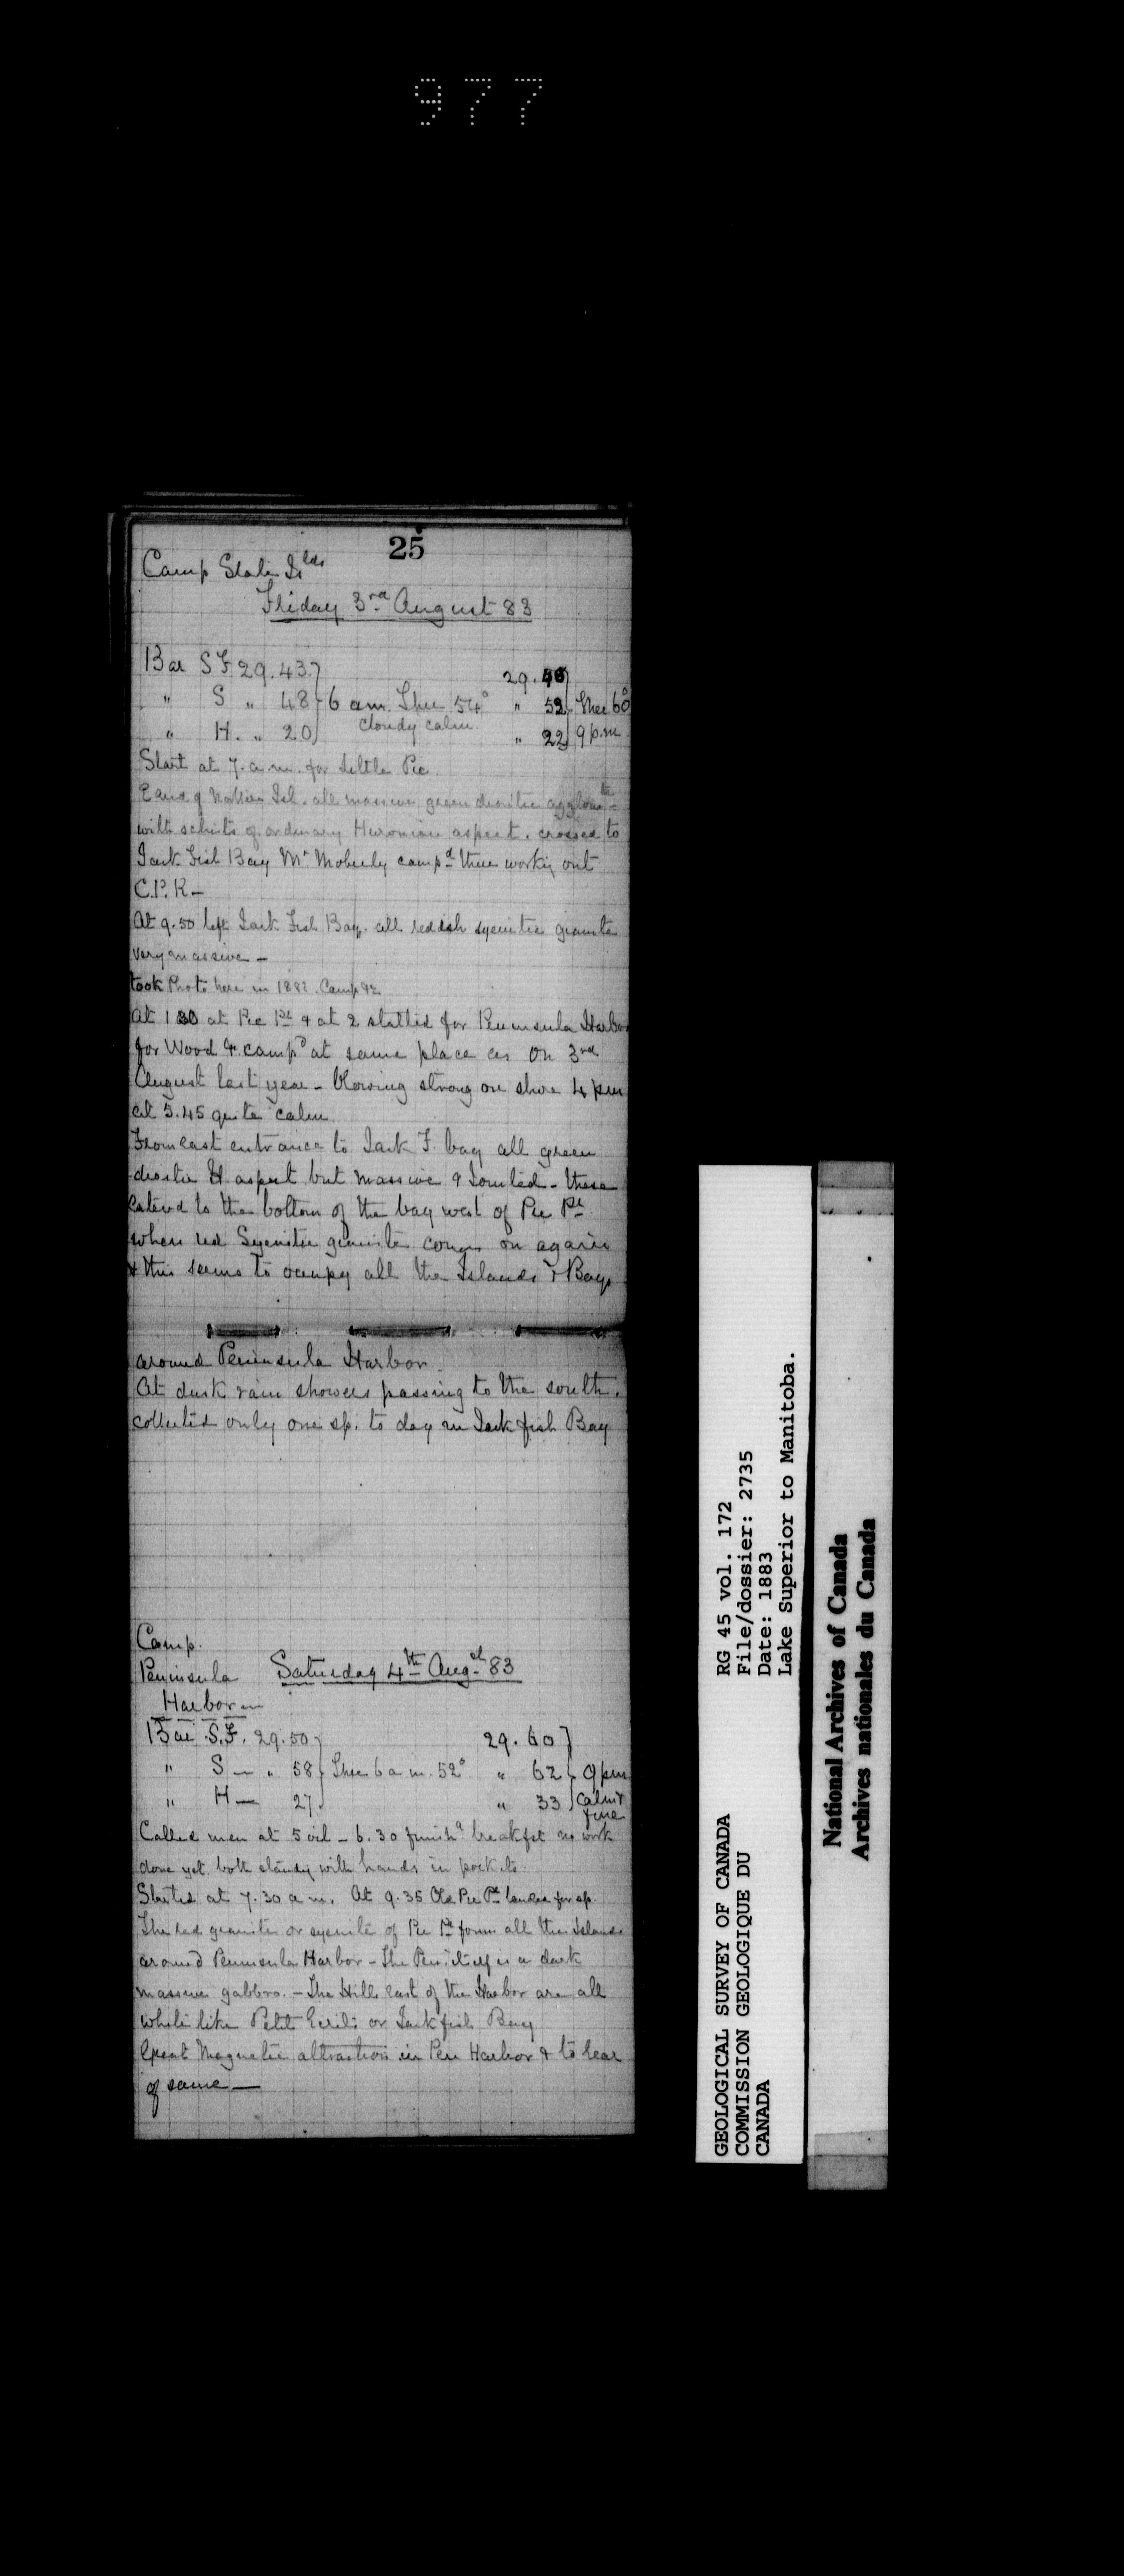 977
25
Camp Slate Islds
Friday 3rd August 83
Bar S F. 29.43 29.46
" S " 48 6 am. Ther 54° " 52 Ther 60°
" H. " 20 cloudy calm " 22 9 p.m
Start at 7. a.m. for Little Pic
E end of Isl. all massive green dioritic
with schists of ordinary Huronian aspect. crossed to
Jack Fish Bay Mr Moberly campd there working out
C.P.R –
At 9.50 left Jack Fish Bay. all reddish syenitic granite
very massive –
took Photo here in 1882. Camp
At 1 30 at Pic Pt & at 2 started for Peninsula Harbor
for Wood & campd at same place as on 3rd
August last year – blowing strong on shore 4 pm
at 5.45 quite calm
From east entrance to Jack F. bay all green
diorite H aspect but massive & jointed – these
extend to the bottom of the bay west of Pic Pt
when red Syenitic granite comes on again
& this seems to occupy all the Islands & Bays
around Peninsula Harbor.
At dusk rain showers passing to the south.
collected only one sp. to day in Jackfish Bay
Camp.
Peninsula Saturday 4th Augst 83
Harbor
Bar S.F. 29.50 29.60
" S – " 58 Ther 6 a.m. 52° " 62 9 pm
" H – 27 " 33 Calm & fine
Called men at 5 – 6.30 finishd breakfst no work
done yet. both standg with hands in pockets.
Started at 7.30 a m. At 9.35 Old Pic Pt landed for sp.
The red granite or syenite of Pic Pt forms all the Islands
around Peninsula Harbor – The Pen. itself is a dark
massive gabbro. – The Hills east of the Harbor are all
white like Petit or Jackfish Bay
Great Magnetic attraction in Pen Harbor & to
of same —
GEOLOGICAL SURVEY OF CANADA RG 45 vol. 172
COMMISSION GEOLOGIQUE DU File/dossier: 2735
CANADA Date: 1883
Lake Superior to Manitoba.
National Archives of Canada
Archives nationales du Canada